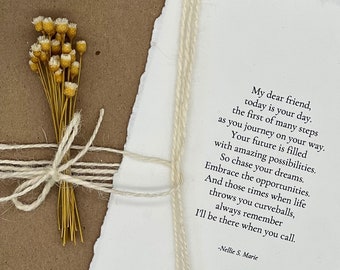 My dear friend,
today is your day.
the first of many steps
as you journey on your way.
Your future is filled
with amazing possibilities.
So chase your dreams.
Embrace the opportunities.
And those times when life
throws you curveballs,
always remember
I'll be there when you call.
-Nellie S. Marie